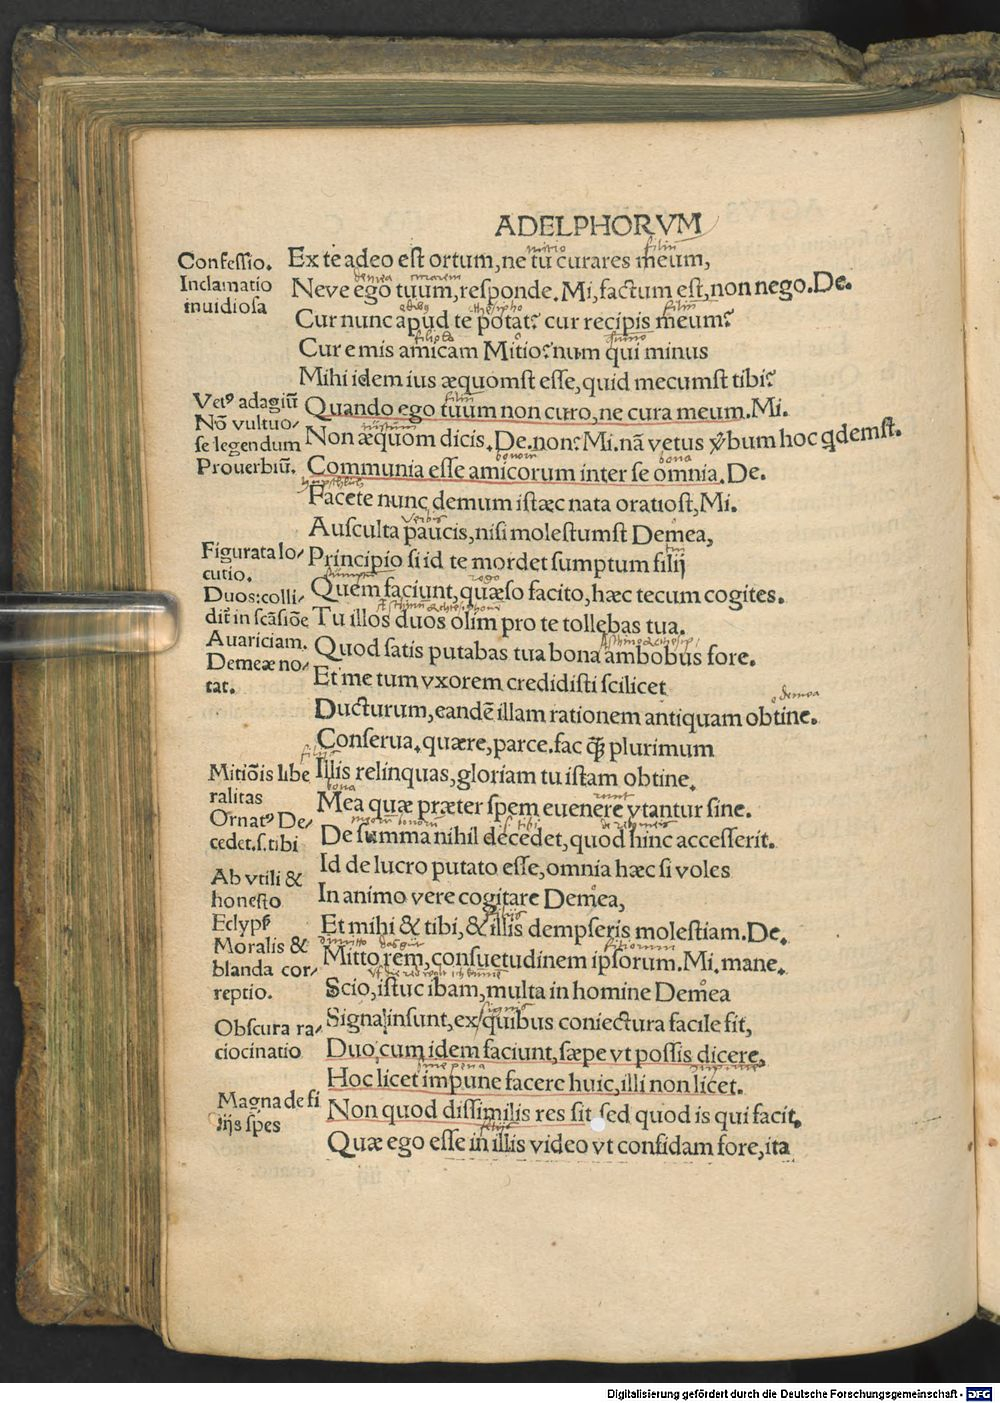 ADELPHORVM
Confessio.
Inclamatio
inuidiosa
Ex te adeo eſt ortum, ne tu curares meum,
Neve ego tuum, reſponde. Mi, factum eſt, non nego. De.
Cur nunc apud te potat? cur recipis meum?
Cur emis amicam Mitio? num qui minus
Mihi idem ius æquomſt eſſe, quid mecumſt tibi?
Vetꝰ adagiū
Nō vultuo/
ſe legendum
Prouerbiū.
Quando ego tuum non curo, ne cura meum. Mi.
Non æquom dicis. De. non? Mi. nā vetus v̄bum hoc q̄demſt.
Communia eſſe amicorum inter ſe omnia. De.
Facete nunc demum iſtæc nata oratioſt, Mi.
Auſculta paucis, niſi moleſtumſt Demea,
Figurata lo/
cutio.
Duos: colli/
dit̄ in ſcāſiōe
Auariciam.
Demeæ no/
tat.
Principio ſi id te mordet ſumptum filij
Quem faciunt, quæſo facito, hæc tecum cogites.
Tu illos duos olim pro te tollebas tua.
Quod ſatis putabas tua bona ambobus fore.
Et me tum vxorem credidiſti ſcilicet
Ducturum, eandē illam rationem antiquam obtine.
Conſerua, quære, parce. fac q̄ꝫ plurimum
Mitiōis libe
ralitas
Ornatꝰ De/
cedet. ſ. tibi
Illis relinquas, gloriam tu iſtam obtine.
Mea quæ præter ſpem euenere vtantur ſine.
De ſumma nihil decedet, quod hinc acceſſerit.
Id de lucro putato eſſe, omnia hæc ſi voles
Ab vtili &
honeſto
Eclypſ
Moralis &
blanda cor/
reptio.
In animo vere cogitare Demea,
Et mihi & tibi, & illis dempſeris moleſtiam. De.
Mitto rem, conſuetudinem ipſorum. Mi. mane.
Scio, iſtuc ibam, multa in homine Demea
Obſcura ra/
ciocinatio
Signa inſunt, ex quibus coniectura facile fit,
Duo cum idem faciunt, ſæpe vt poſſis dicere,
Hoc licet impune facere huic, illi non licet.
Magna de fi
lijs ſpes
Non quod diſſimilis res ſit ſed quod is qui facit.
Quæ ego eſſe in illis video vt confidam fore, ita
Digitalisierung gefördert durch die Deutsche Forschungsgemeinschaft - DFG